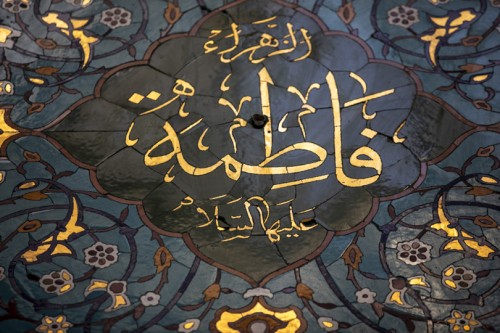 الزهراء
فاطمة
عليها السلام